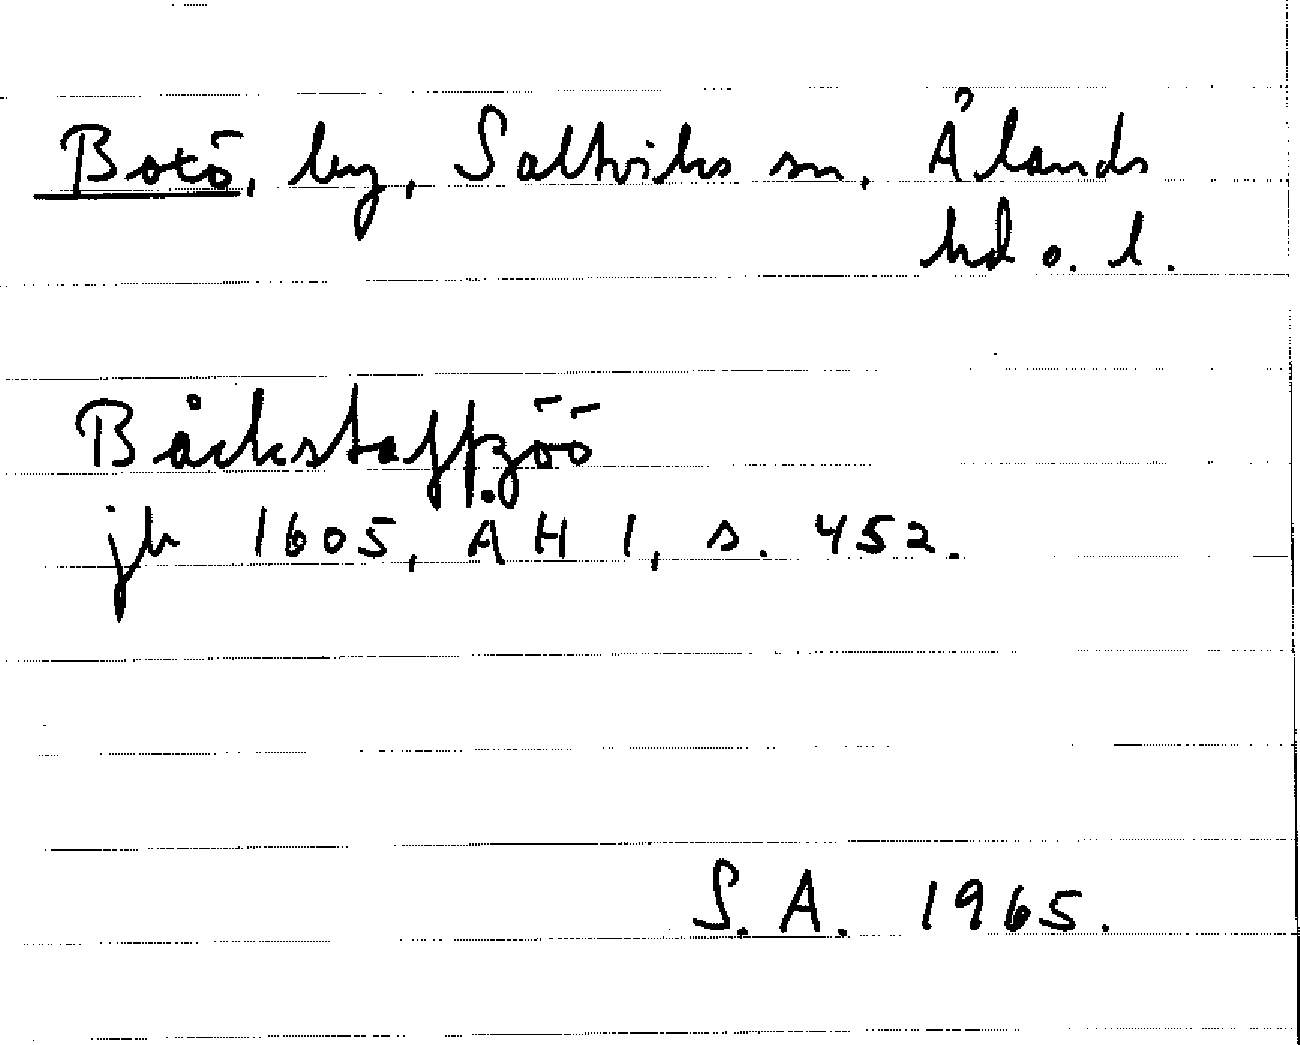 Botö, by, Saltviks sn, Ålands
hd o. l.
Båckstaffzöö
jb 1605, ÅH 1, s. 452.
S. A. 1965.